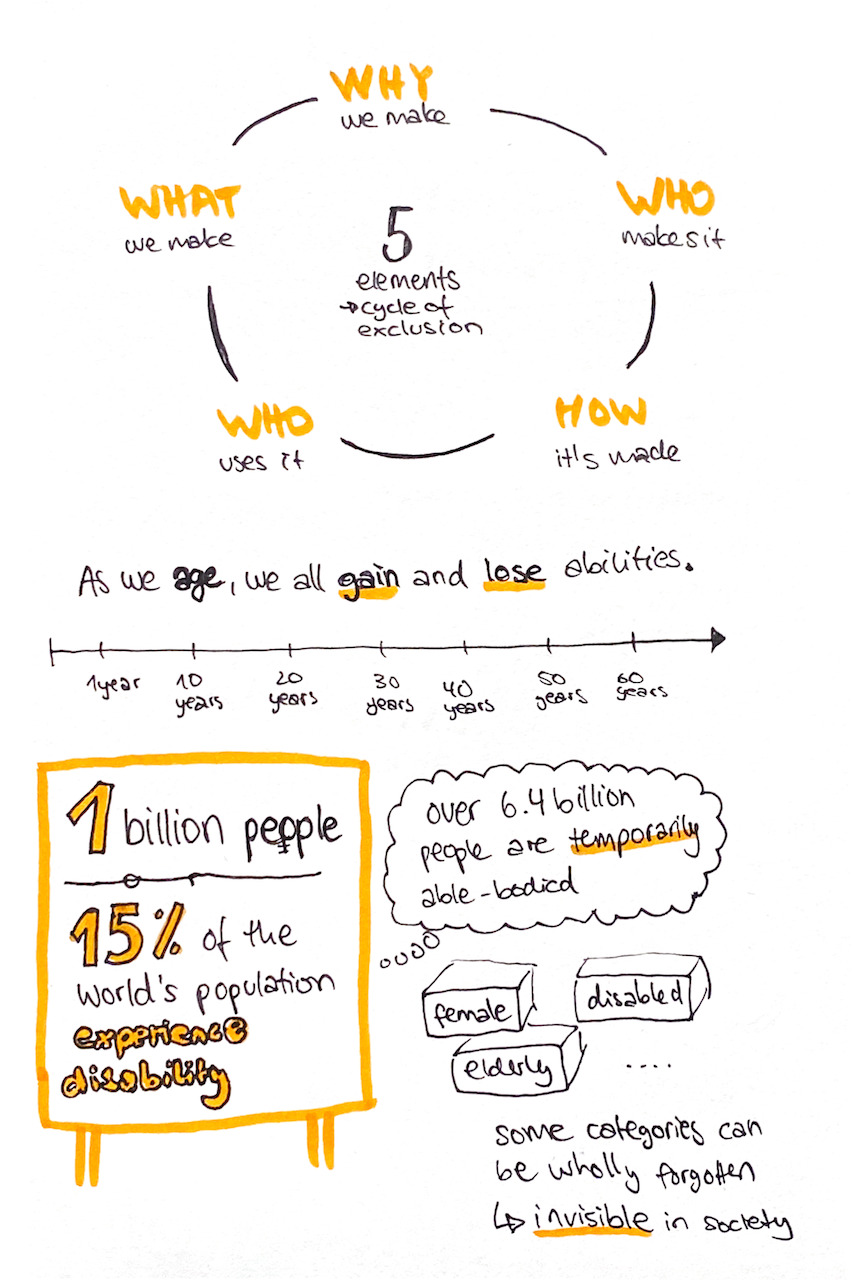 WHY
we make
WHAT
we make
WHO
makes it
5
elements
→cycle of
exclusion
WHO
uses it
HOW
it's made
As we age, we all gain and lose abilities.
1year 10 years 20 years 30 years 40 years 50 years 60 years
1 billion people
15% of the
world's population
experience
disability
over 6.4 billion
people are temporarily
able-bodied
female
disabled
elderly
....
some categories can
be wholly forgotten
↳ invisible in society